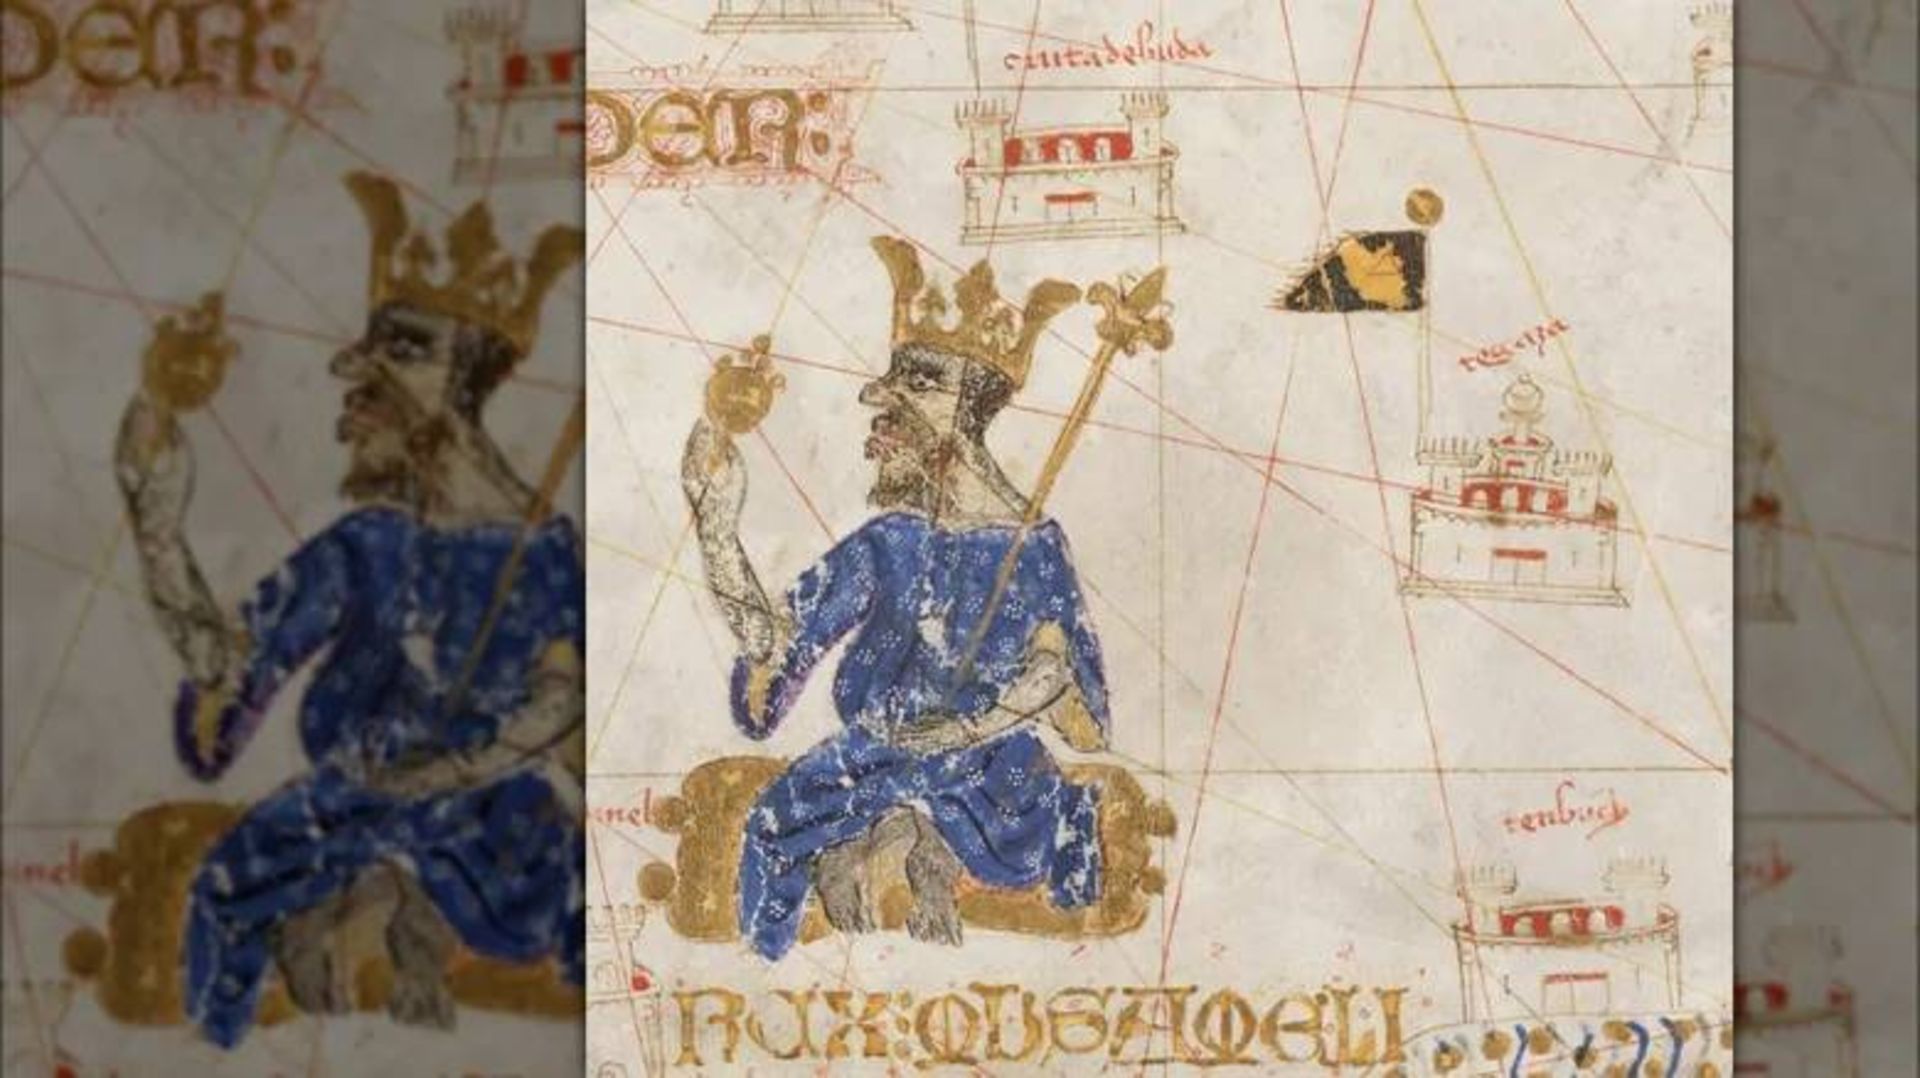 ciutadebuda
DER:
tegaza
nel
tenbuch
REX:MUSAMELI